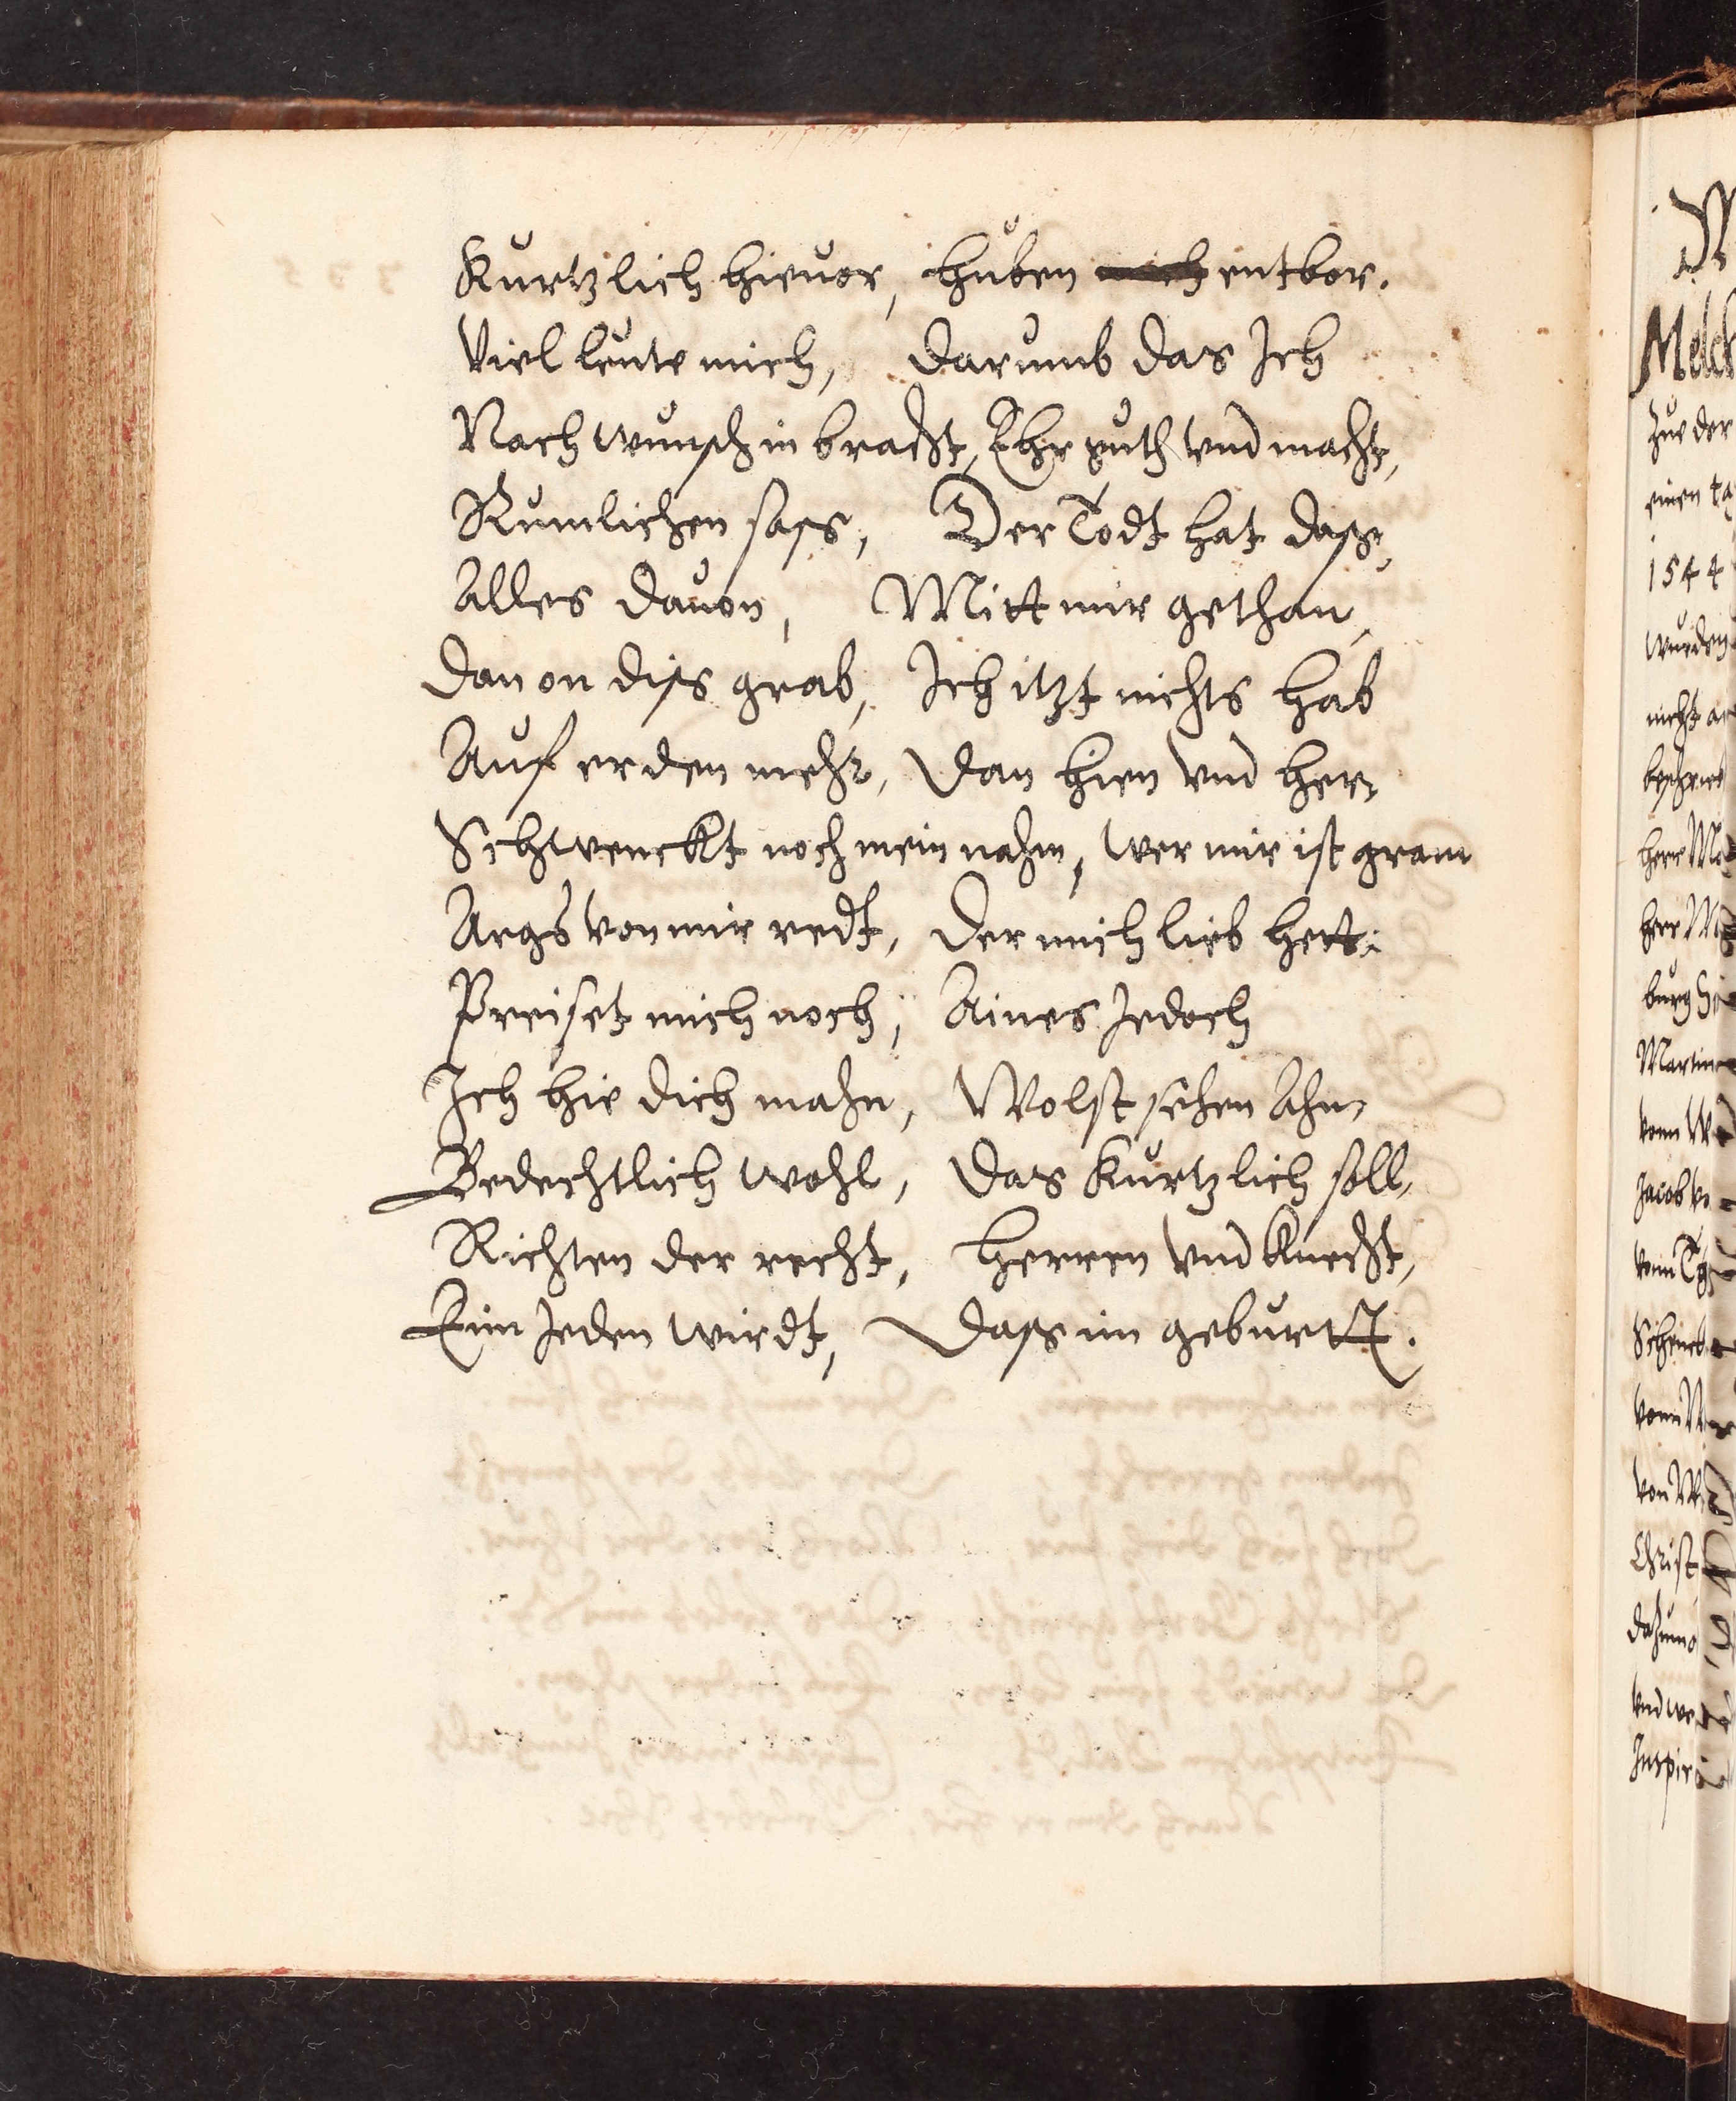 Kurtzlich hieuor, huben entbor.
Viel leute mich, darumb das Ich
Nach wunsch in bracht, Ehr guth vnd macht,
Rumlichen sass, Der Todt hat dass,
Alles dauon, Mitt mir gethan,
Dan on diss grab, Ich itzt nichts hab
Auf erden mehr, Dan hien vnd her,
Schwenckt noch mein nahm, wer mir ist gram
Args von mir redt, der mich lieb hett:
Preiset mich noch, Aines Jedoch
Ich hie dich mahn, Wolst sehen Ahn,
Bedechtlich wohl, das kurtzlich soll,
Richten der recht, Herren vnd knecht,
Eim Jeden wirdt, Dass im geburtt.
Melch
Zue der
einen ta
1544
wurden
nicht an
herr M
herr M
burg
Martin
vonn W
Jacob
vom
Schenck
vonn
von W
Christ
vnd we